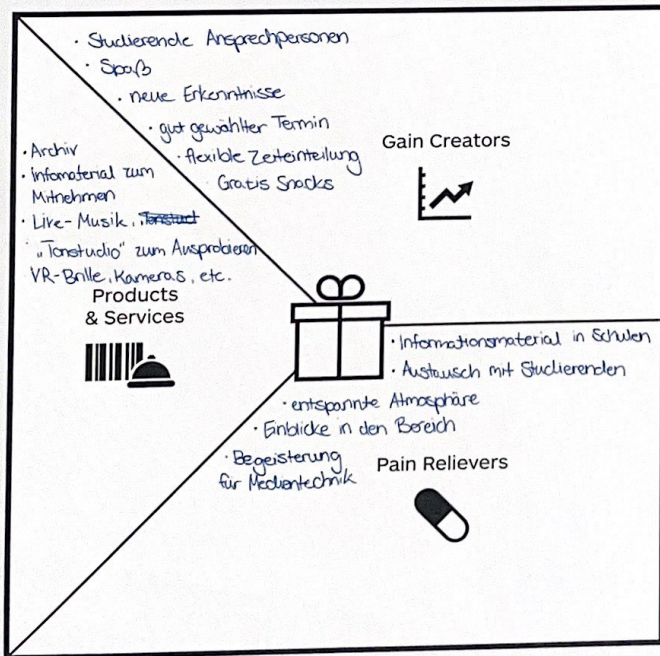 · Studierende Ansprechpersonen
· Spaß
· neue Erkenntnisse
· gut gewählter Termin
· flexible Zeiteinteilung
Gratis Snacks
Gain Creators
· Archiv
· Infomaterial zum
Mitnehmen
· Live-Musik,
„Tonstudio“ zum Ausprobieren
VR-Brille, Kameras, etc.
Products
& Services
· Informationsmaterial in Schulen
· Austausch mit Studierenden
· entspannte Atmosphäre
· Einblicke in den Bereich
· Begeisterung
für Medientechnik
Pain Relievers